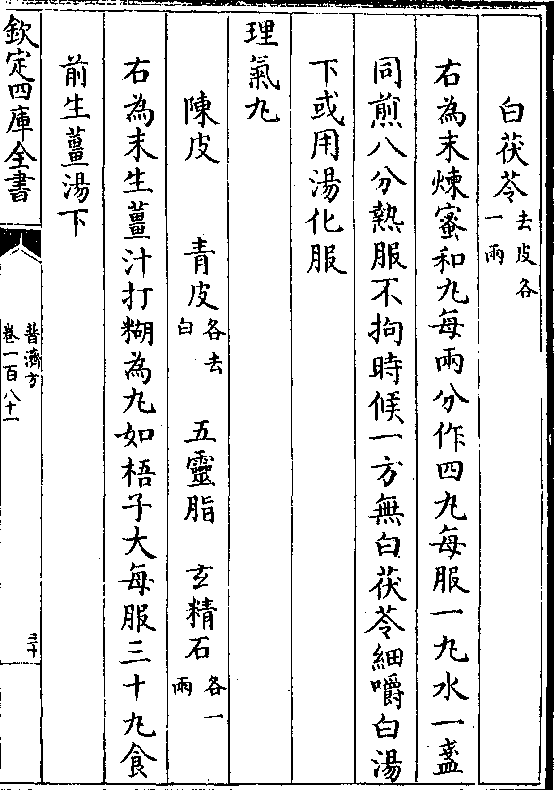 白茯苓去皮各一兩
右為末煉蜜和丸每兩分作四丸每服一丸水一盞
同煎八分熱服不拘時候一方無白茯苓細嚼白湯
下或用湯化服
理氣丸
陳皮　青皮各去白　五靈脂　玄精石各一兩
右為末生薑汁打糊為丸如梧子大每服三十丸食
前生薑湯下
欽定四庫全書　普濟方卷一百八十一　三十